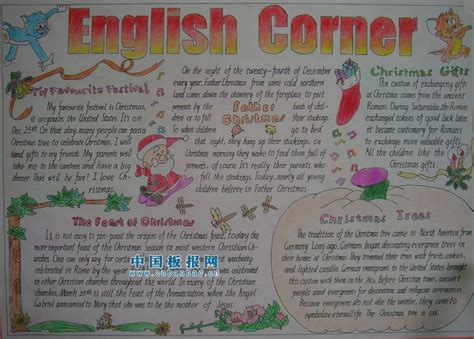 English Corner
My Favourite Festival
My favourite festival is Christmas,
it originates the United States. It's on
Dec. 25th. On that day, many people can pass
Christmas tree to celebrate Christmas. I will
send gifts to my friends. My parents will
take me to the and have a big
dinner. That will be fun! I love Ch-
ristmas.
On the night of the twenty-fourth of December
every year, Father Christmas from some cold northern
land comes down the chimney of the fireplace to put
presents by the
Father
Christmas
beds of chil-
dren or to fill
their stockings.
So when children
go to bed
that night, they hang up their stockings there.
On Christmas morning they wake to find them full
of presents. of course. It's really their parents who
fill the stockings. Today, nearly all young
children believe in Father Christmas.
Christmas Gifts
The custom of exchanging gifts
at Christmas comes from the ancient
Romans. During Saturnalia, the Romans
exchanged tokens of good luck. later,
it became customary for Romans
to exchange more valuable gifts
All the children like the
Christmas gifts.
The Feast of Christmas
It is not easy to pin-point the origins of the Christmas feast, today the
more important feast of the Christmas season in most western Christian Chu-
rches. One can only say for certain that
celebrated in Rome by the year
celebrated in churches throughout the world. In many of the Christian
churches, March 25th is still the Feast of the Annunciation, where the Angel
Gabriel announced to Mary that she was to be the mother of Jesus.
中国板报网
Christmas Trees
The tradition of the Christmas tree came to North America from
Germany long ago. Germans began decorating evergreen trees in
their homes at Christmas. They trimmed their trees with fruits, cookies,
and lighted candles. German immigrants to the United States brought
this custom with them in the 1800s. Before Christian times, ancient
people used evergreens for decoration and religious ceremonies.
Because evergreens do not die in the winter, they came to
symbolize eternal life. The Christmas tree is